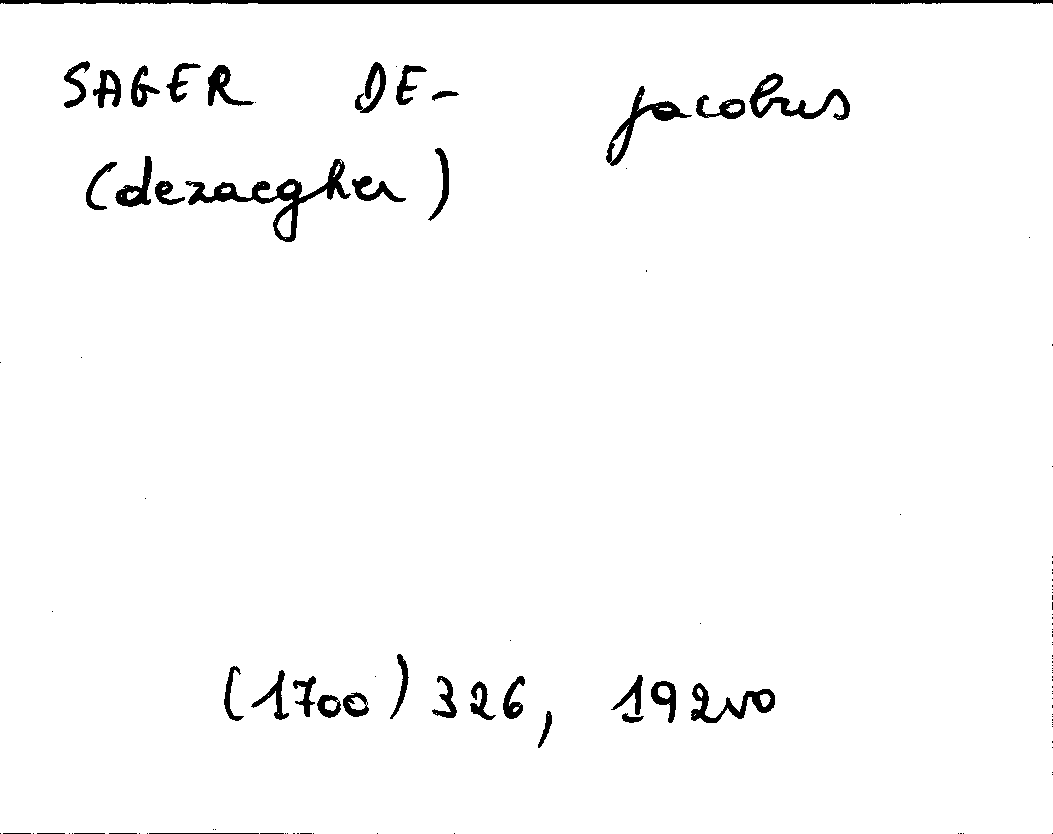 SAGER DE- jacobus
(dezaegher)
(1700) 326, 192vo